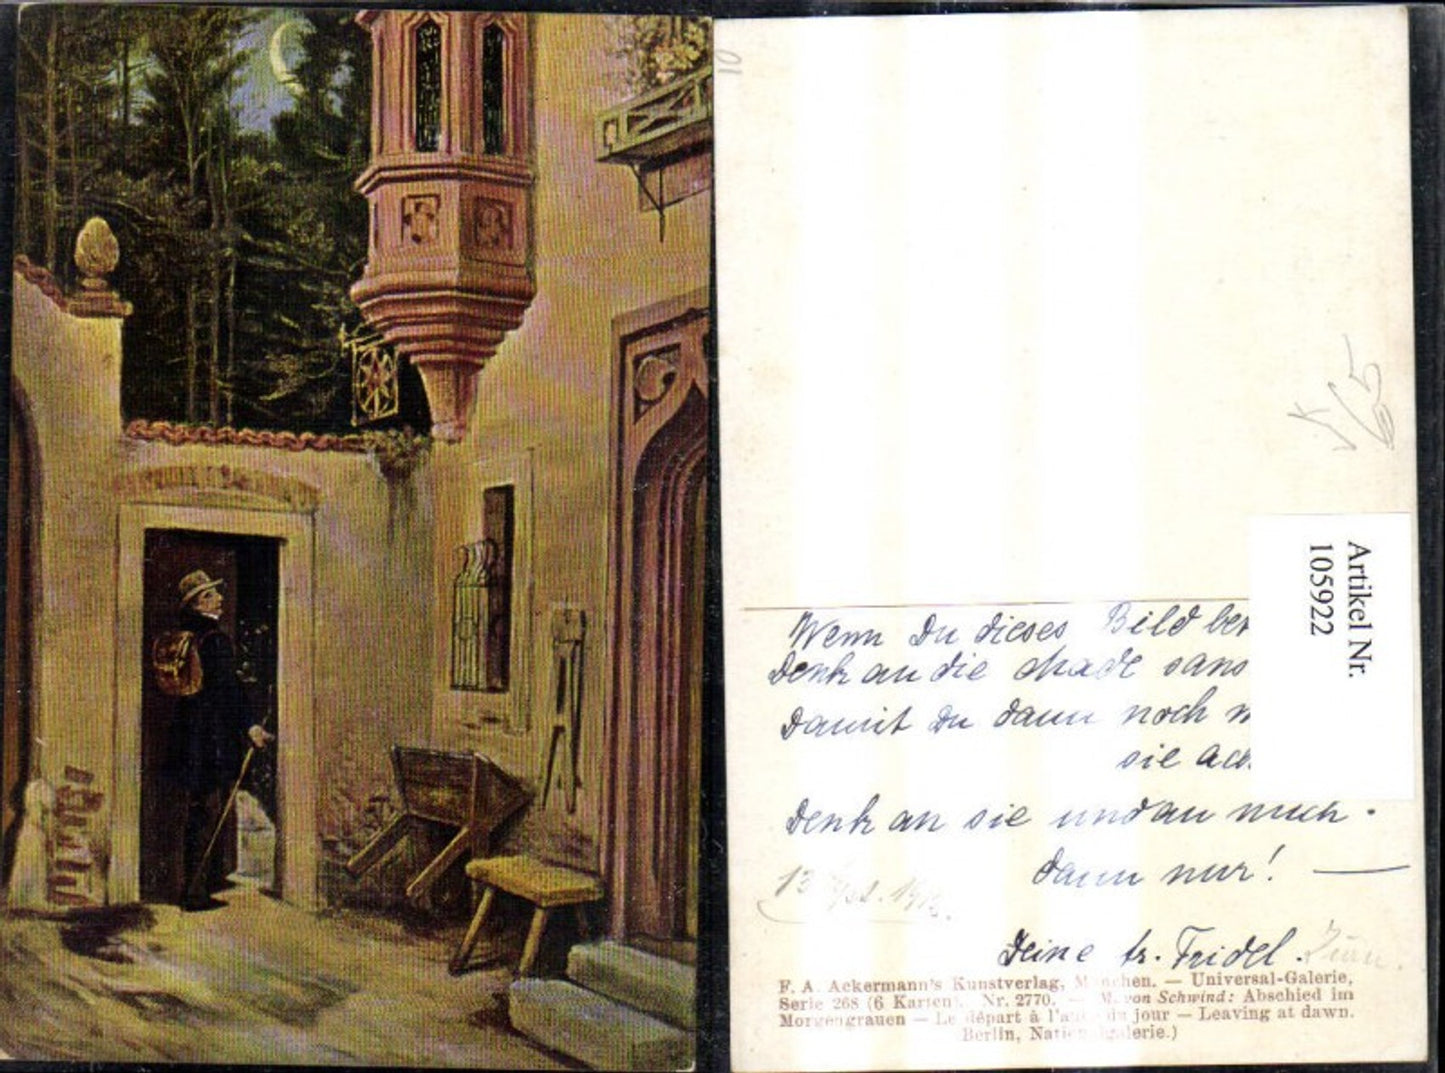 10
Artikel Nr.
105922
Wenn Du dieses Bild
Denk an die
damit Du dann noch
sie
Denk an sie und an mich.
dann nur! —
Deine tr. Friedl.
F. A. Ackermann's Kunstverlag, München. — Universal-Galerie,
Serie 268 (6 Karten). Nr. 2770. — M. von Schwind: Abschied im
Morgengrauen — Le départ à l'aube du jour — Leaving at dawn.
(Berlin, Nationalgalerie.)